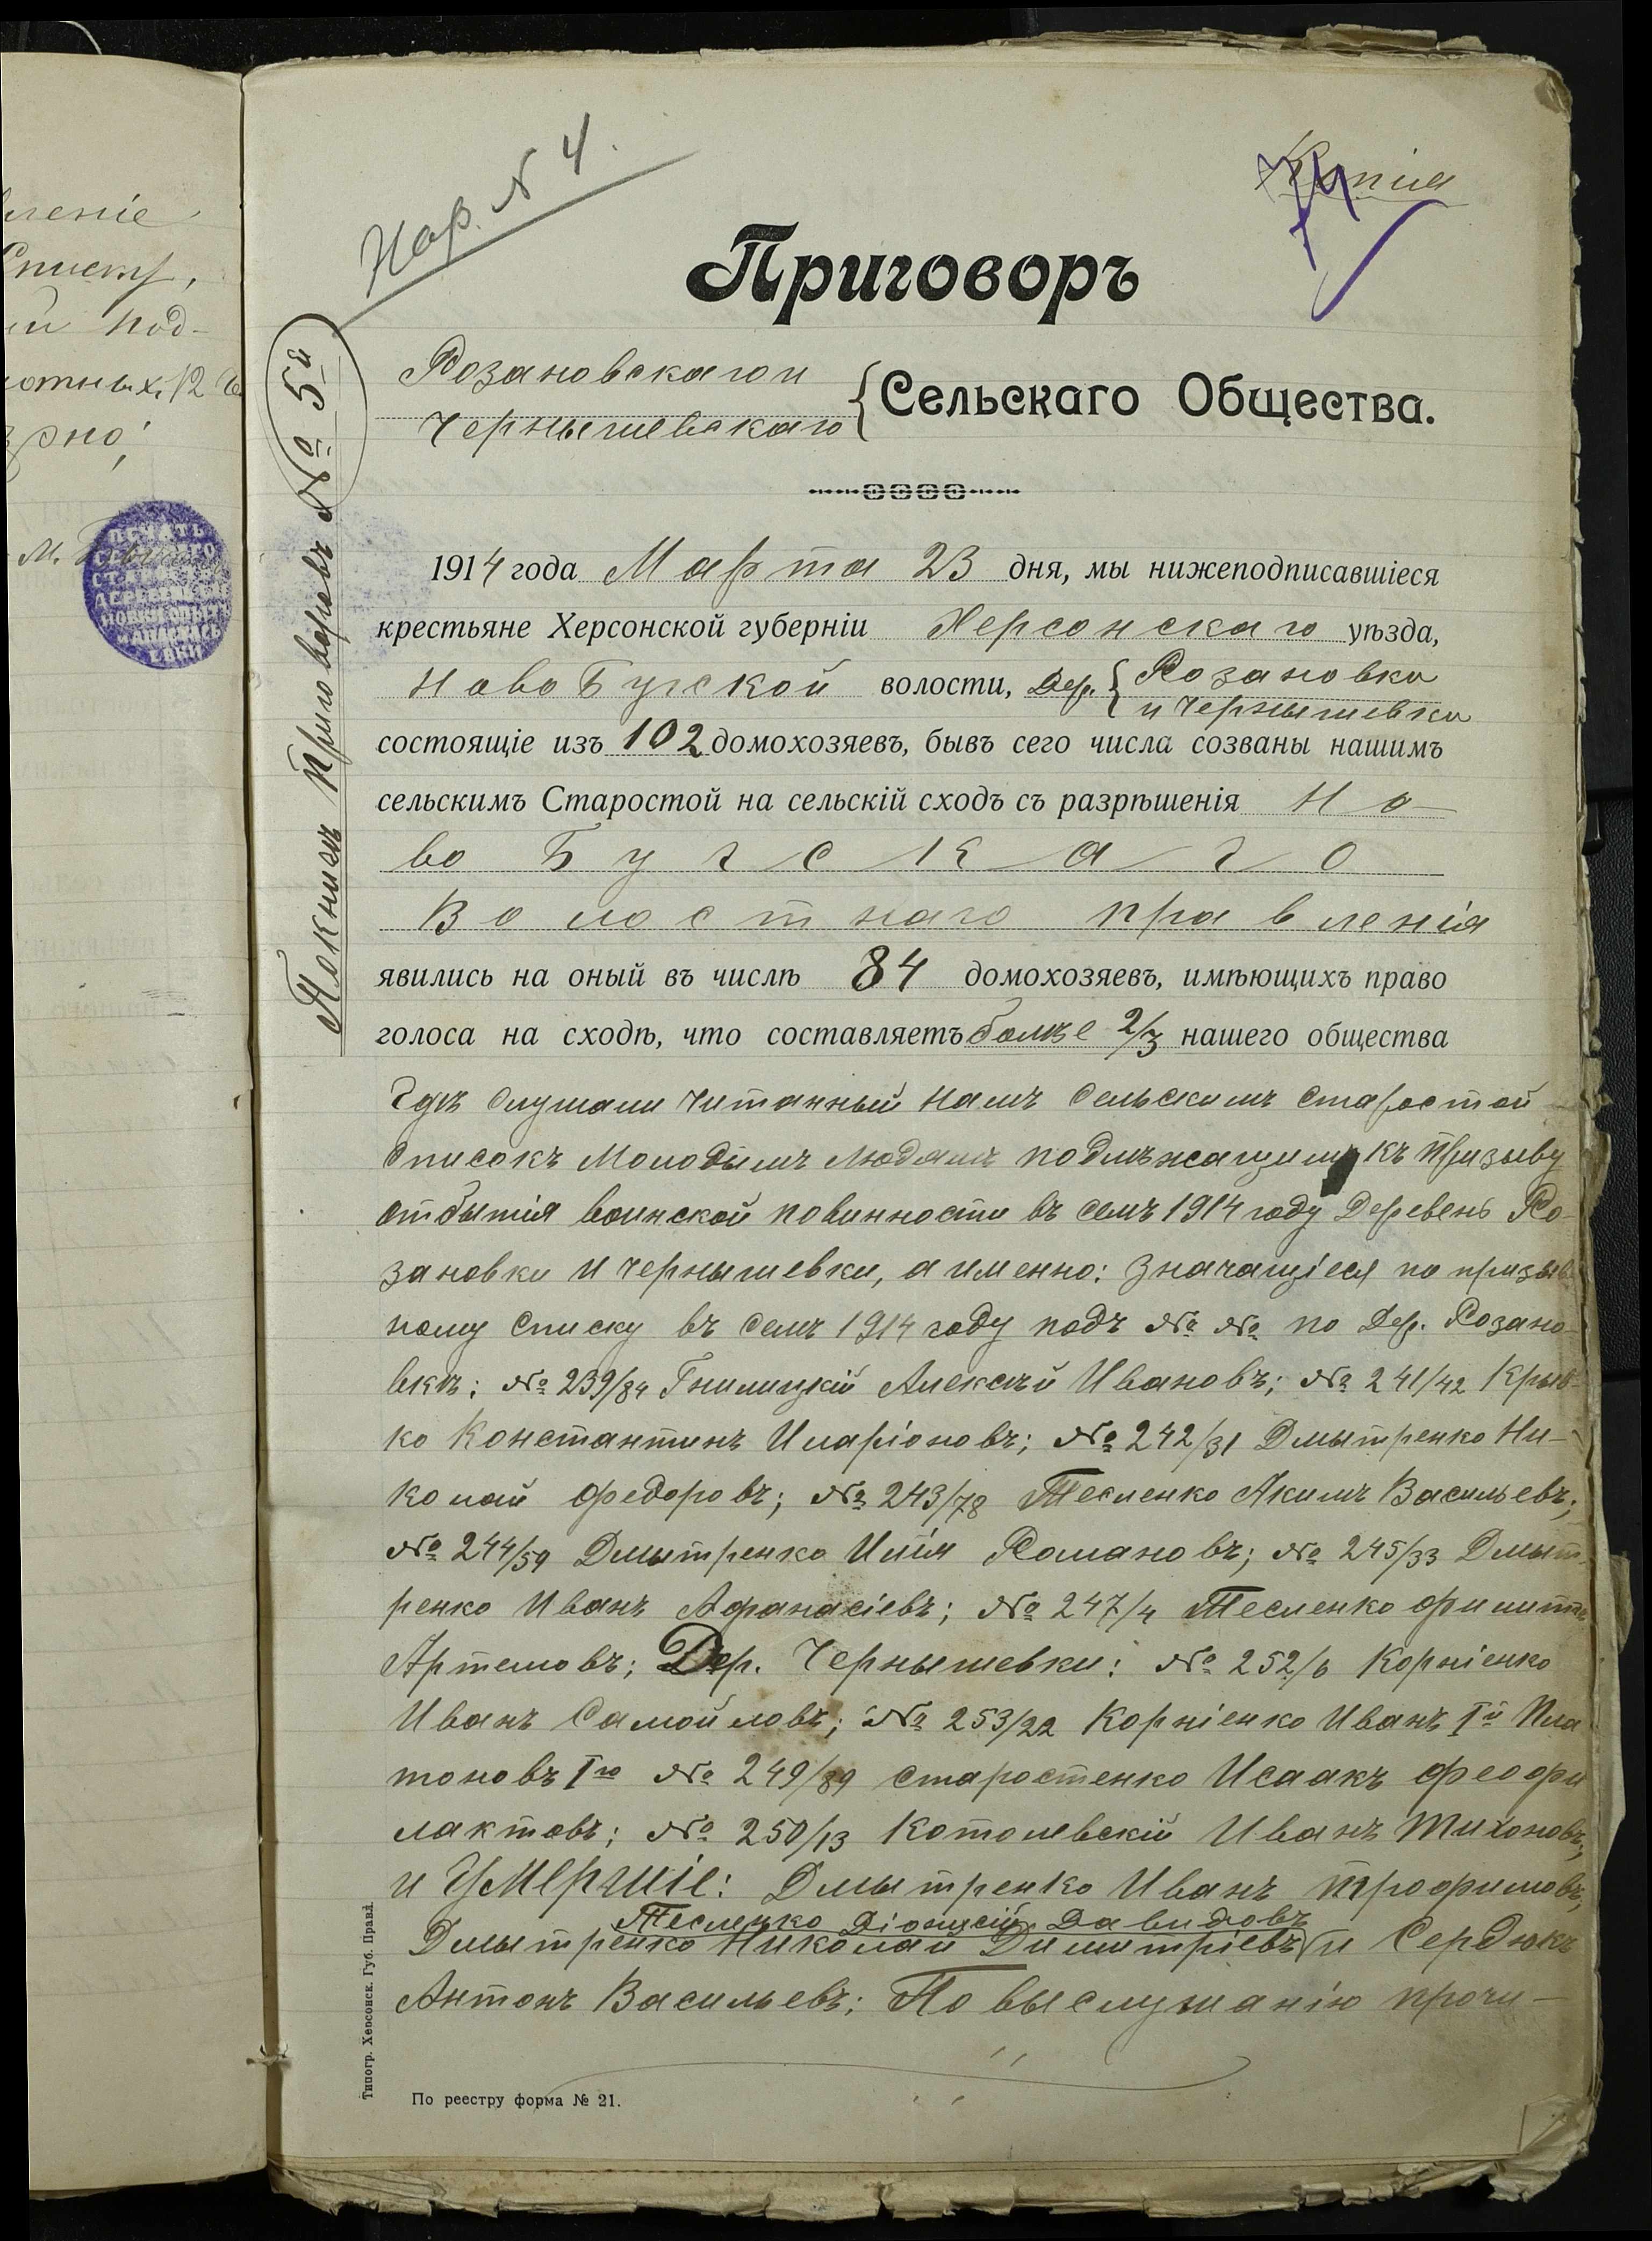 леніе
Списку,
ии под-
отныхъ 12
рно;
М.
ПЕЧАТЬ
Нар. N 4.
Копія
74
Приговоръ
Розановскаго и
Чернышевскаго
Сельскаго Общества.
По книгѣ приговоровъ № 5й
1914 года Марта 23 дня, мы нижеподписавшіеся
крестьяне Херсонской губерніи Херсонскаго уѣзда,
Ново Бугской волости, Дер. Розановки
и Чернышевки
состоящіе изъ 102 домохозяевъ, бывъ сего числа созваны нашимъ
сельскимъ Старостой на сельскій сходъ съ разрѣшенія Но-
во Бугскаго
Волостнаго правленія
явились на оный въ числѣ 84 домохозяевъ, имѣющихъ право
голоса на сходѣ, что составляетъ болѣе 2/3 нашего общества
Гдѣ слушали читанный намъ Сельскимъ Старостой
Списокъ Молодымъ людямъ подлѣжащимъ къ призыву
отбытія воинской повинности въ семъ 1914 году Деревень Ро-
зановки и Чернышевки, а именно: Значащіеся по призыв
ному Списку въ семъ 1914 году подъ № № по Дер. Розано-
вкѣ: № 239/84 Гнилицкій Алексѣй Ивановъ; № 241/42 Крыв-
ко Константинъ Иларіоновъ; № 242/31 Дмытренко Ни-
колай Федоровъ; № 243/78 Тесленко Акимъ Васильевъ;
№ 244/59 Дмытренко Илія Романовъ; № 245/33 Дмыт-
ренко Иванъ Афанасіевъ; № 247/4 Тесленко Филиппъ
Артемовъ; Дер. Чернышевки: № 252/6 Корніенко
Иванъ Самойловъ; № 253/22 Корніенко Иванъ Iй Пла
тоновъ Iго № 249/89 Старостенко Исаакъ Феофи
лактовъ; № 250/13 Котолевскій Иванъ Тихоновъ,
и Умершіе: Дмытренко Иванъ Трофимовъ,
Тесленко Діонисій Давидовъ
Дмытренко Николай Димитріевъ и Сердюкъ
Антонъ Васильевъ: По выслушанію прочи-
Типогр. Херсонск. Губ. Правл.
По реестру форма № 21.